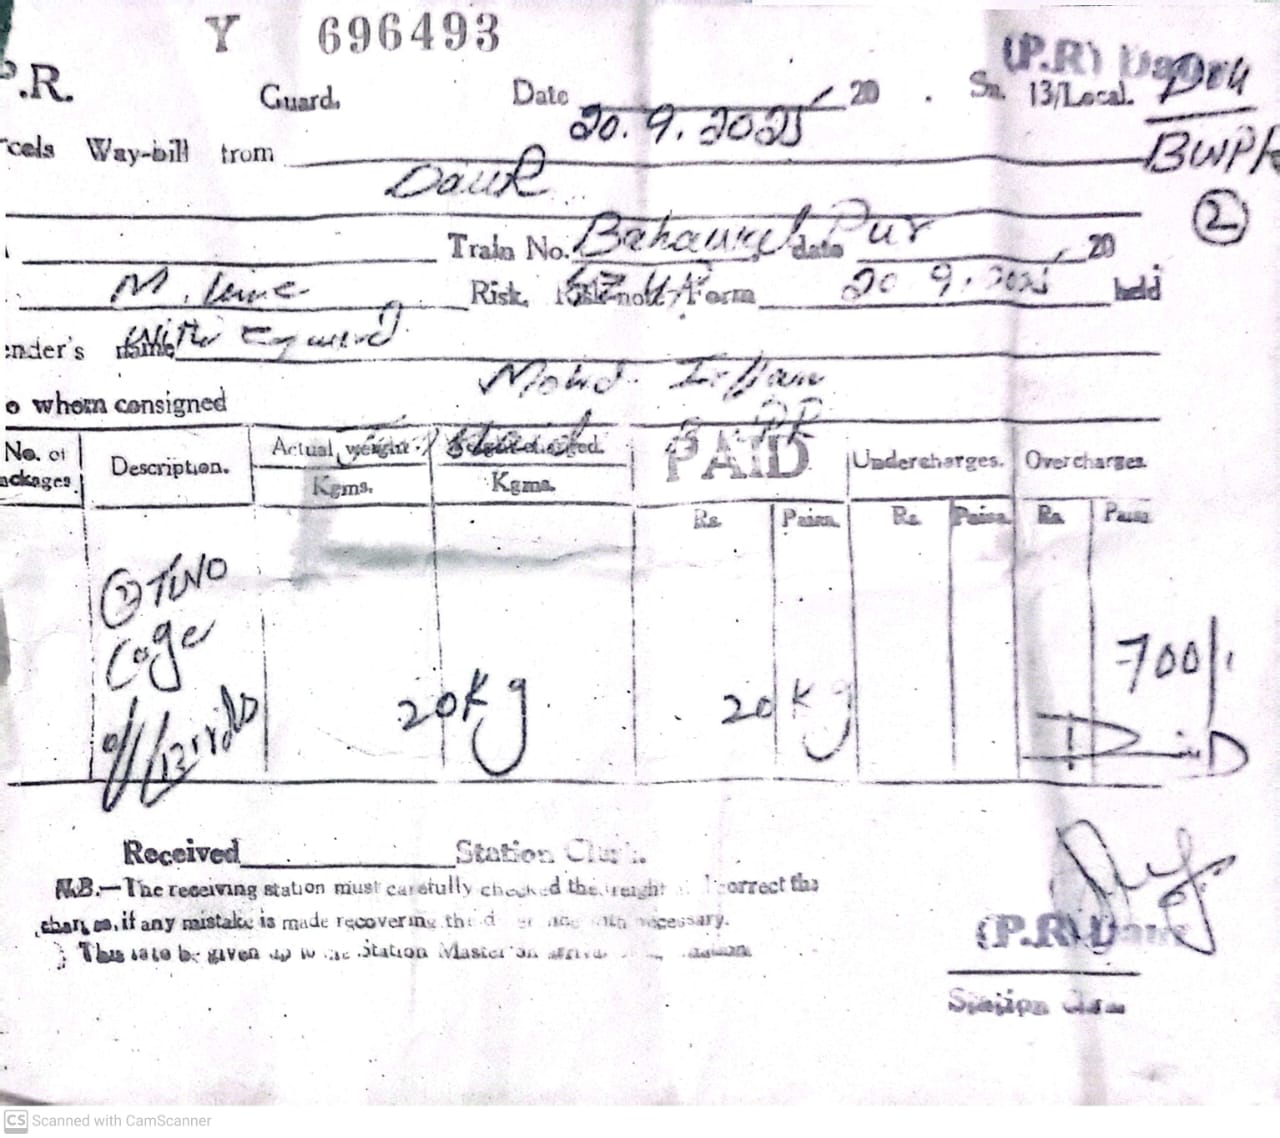 Y 696493
P.R. Guard. Date 20.9.2025 20 . Sn. 13/Local. (P.R) Daur
BWP
cels Way-bill from
Daur
2
Train No. Bahawal Pur date 20
M. Line Risk, Form 20.9.2025 held
ender's name With
Mohd. Irfan
o whom consigned
No. of ackages Description. Actual weight Kgms. charged. Kgms. PAID Undercharges. Overcharges.
Rs. Paisa. Rs. Paisa. Rs. Paisa
② Two
Cage
of Birds
20 Kg 20 Kg 700/.
Paid
Received Station Clerk.
N.B.—The receiving station must carefully checked the freight correct the
charges, if any mistake is made recovering the necessary.
This is to be given up to the Station Master on
(P.R) Daur
Station
CS Scanned with CamScanner